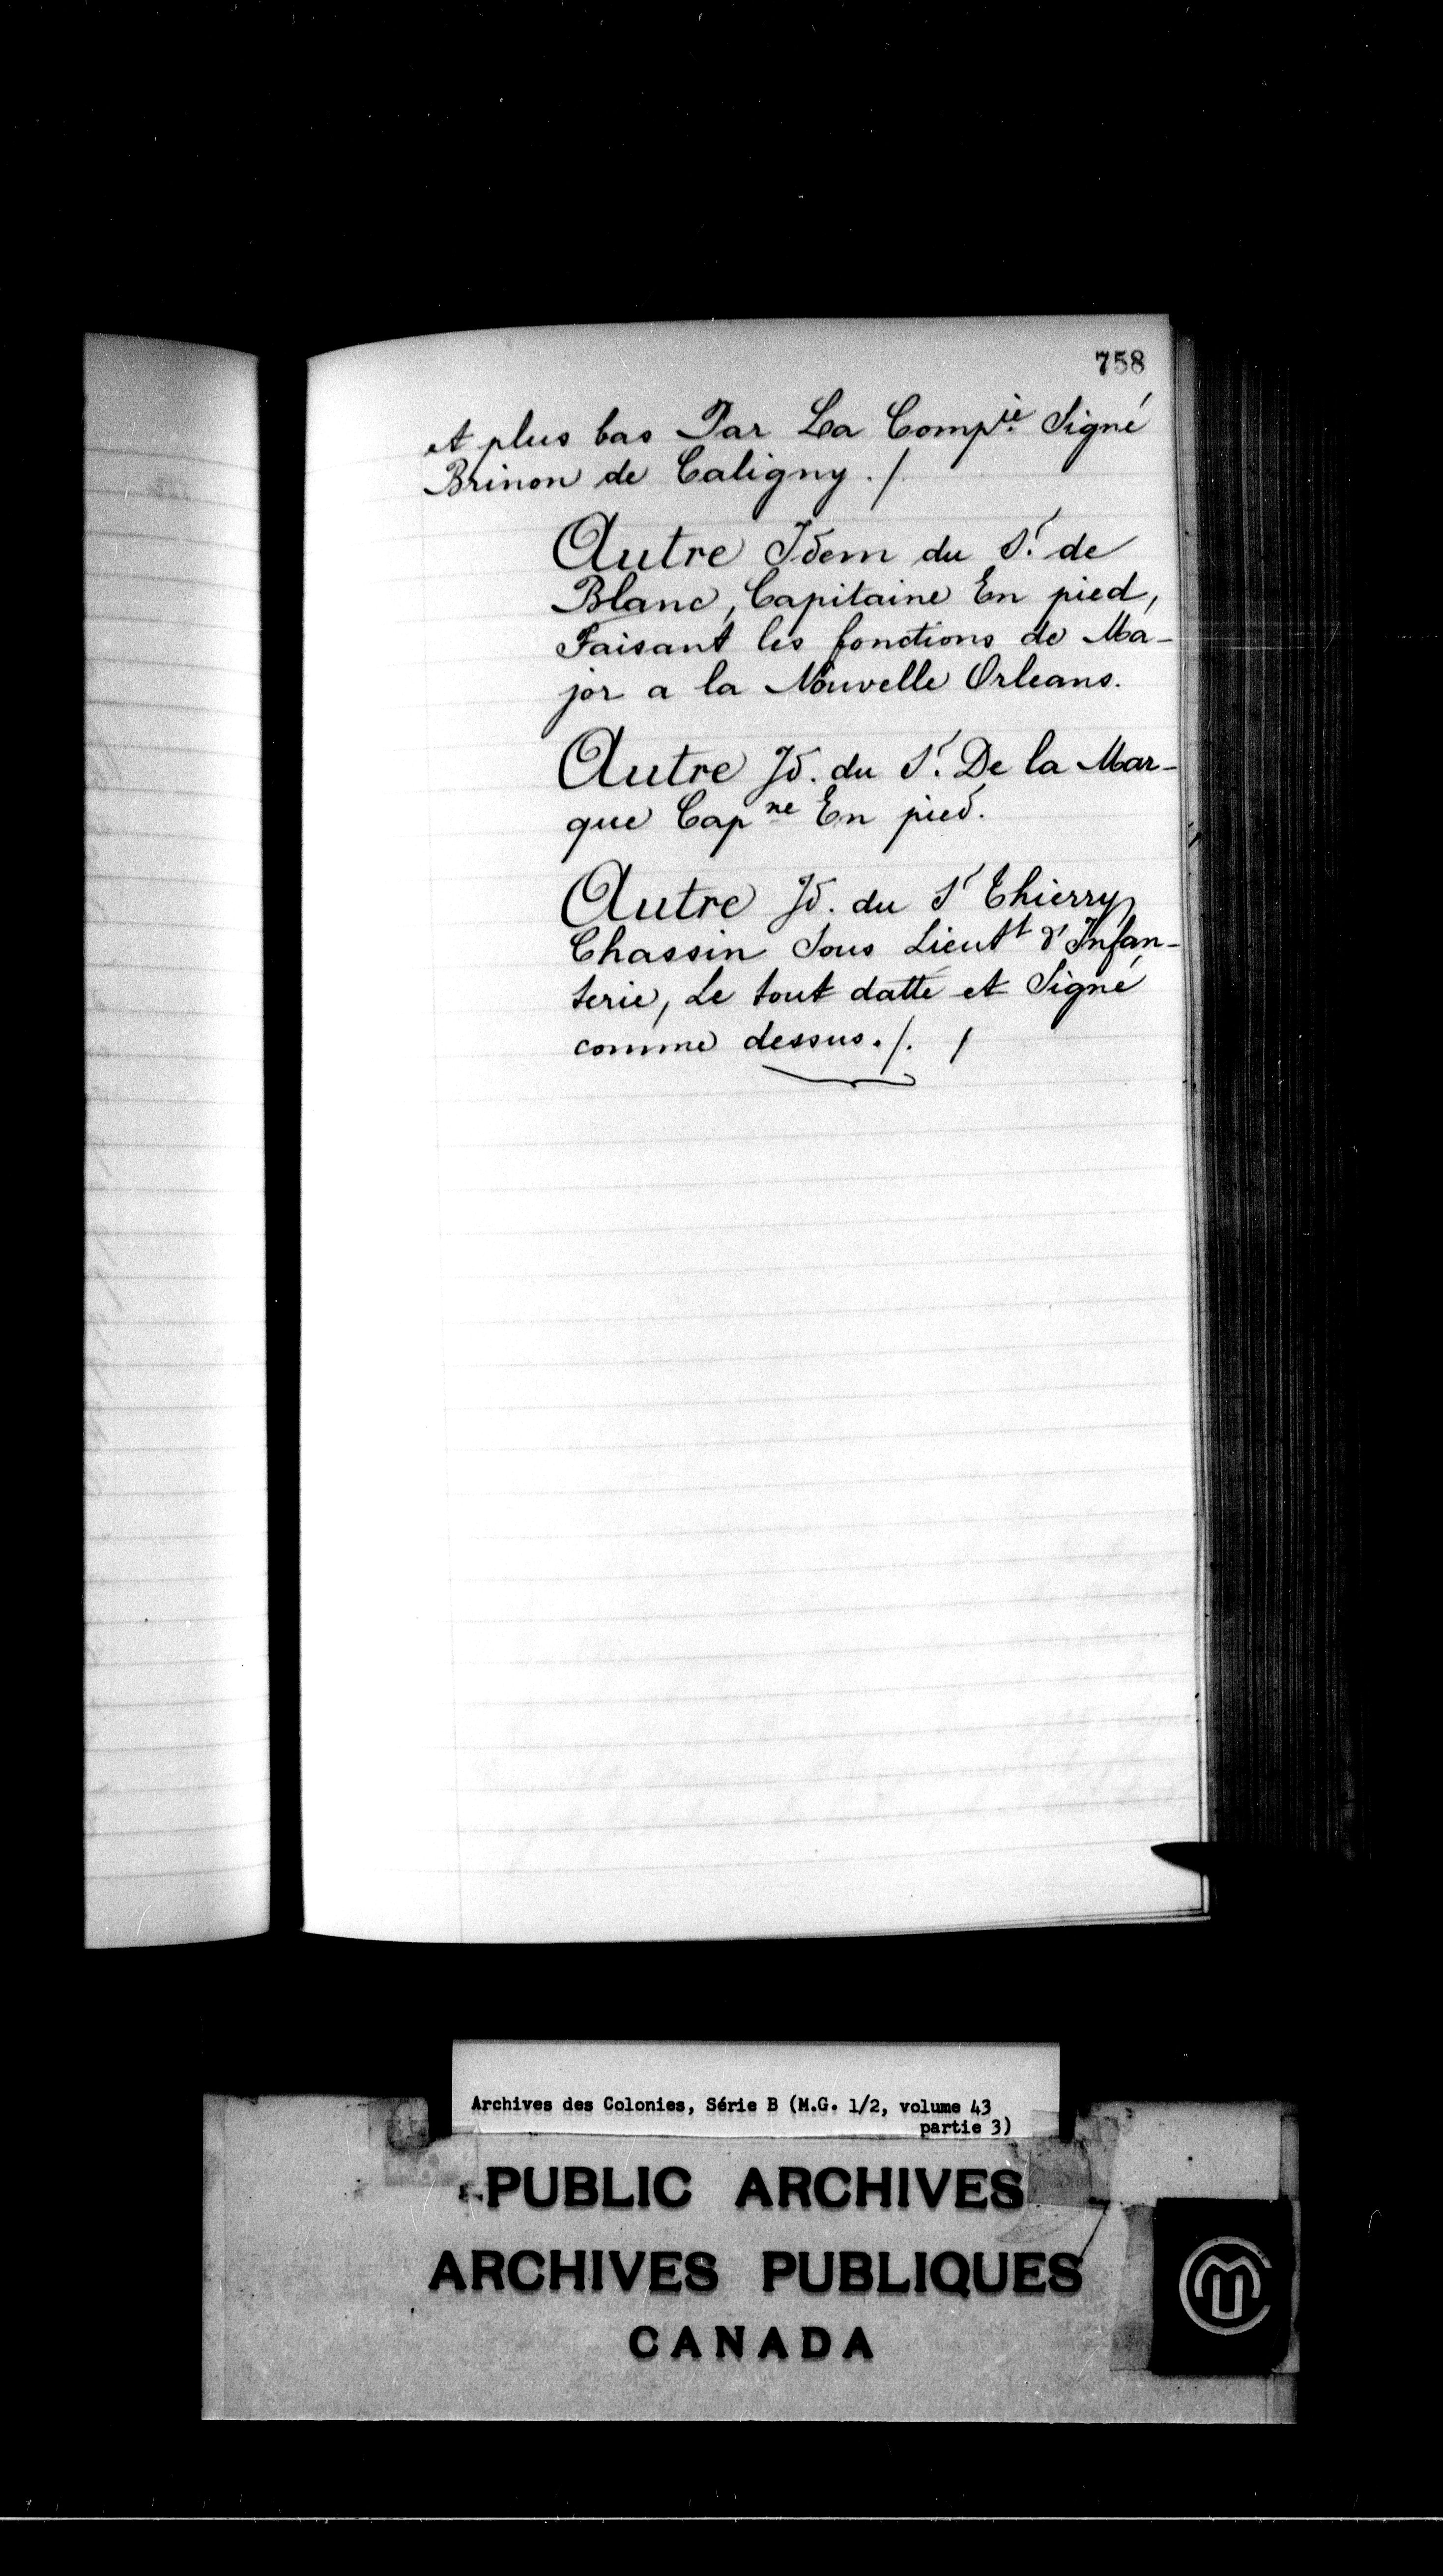 758
et plus bas Par La Comp.ie Signé
Brinon de Caligny ./.
Autre Idem du S.r de
Blanc, Capitaine En pied,
Faisant les fonctions de Ma-
jor a la Nouvelle Orleans.
Autre Id. du S.r De la Mar-
que Cap ne En pied.
Autre Id. du Sr Thierry
Chassin Sous Lieutt d'Infan-
terie, Le tout datte et Signé
comme dessus ./. /
Archives des Colonies, Série B (M.G. 1/2, volume 43
partie 3)
PUBLIC ARCHIVES
ARCHIVES PUBLIQUES
CANADA